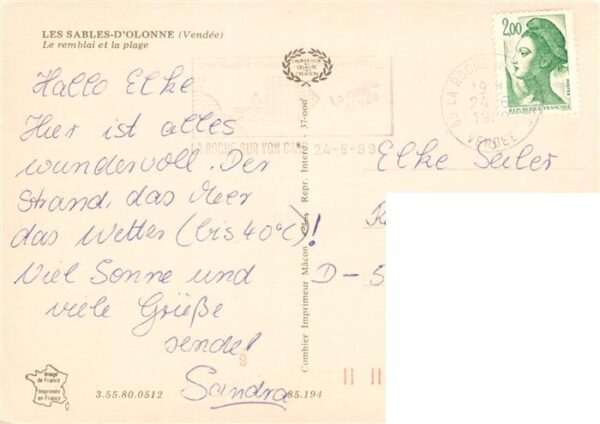 LES SABLES-D'OLONNE (Vendée)
Le remblai et la plage
Hallo Elke
Hier ist alles
wundervoll. Der
Strand, das Meer
das Wetter (bis 40°C)!
Viel Sonne und
viele Grüße
sendet
Sandra
3.55.80.0512
85.194
Image de France
Imprimée en France
Combier Imprimeur Mâcon
Repr. Interd. 37-000
LA ROCHE SUR YON
24-6-89
2,00
REPUBLIQUE FRANÇAISE
85 LA ROCHE
VENDEE
Elke Seiler
D-5